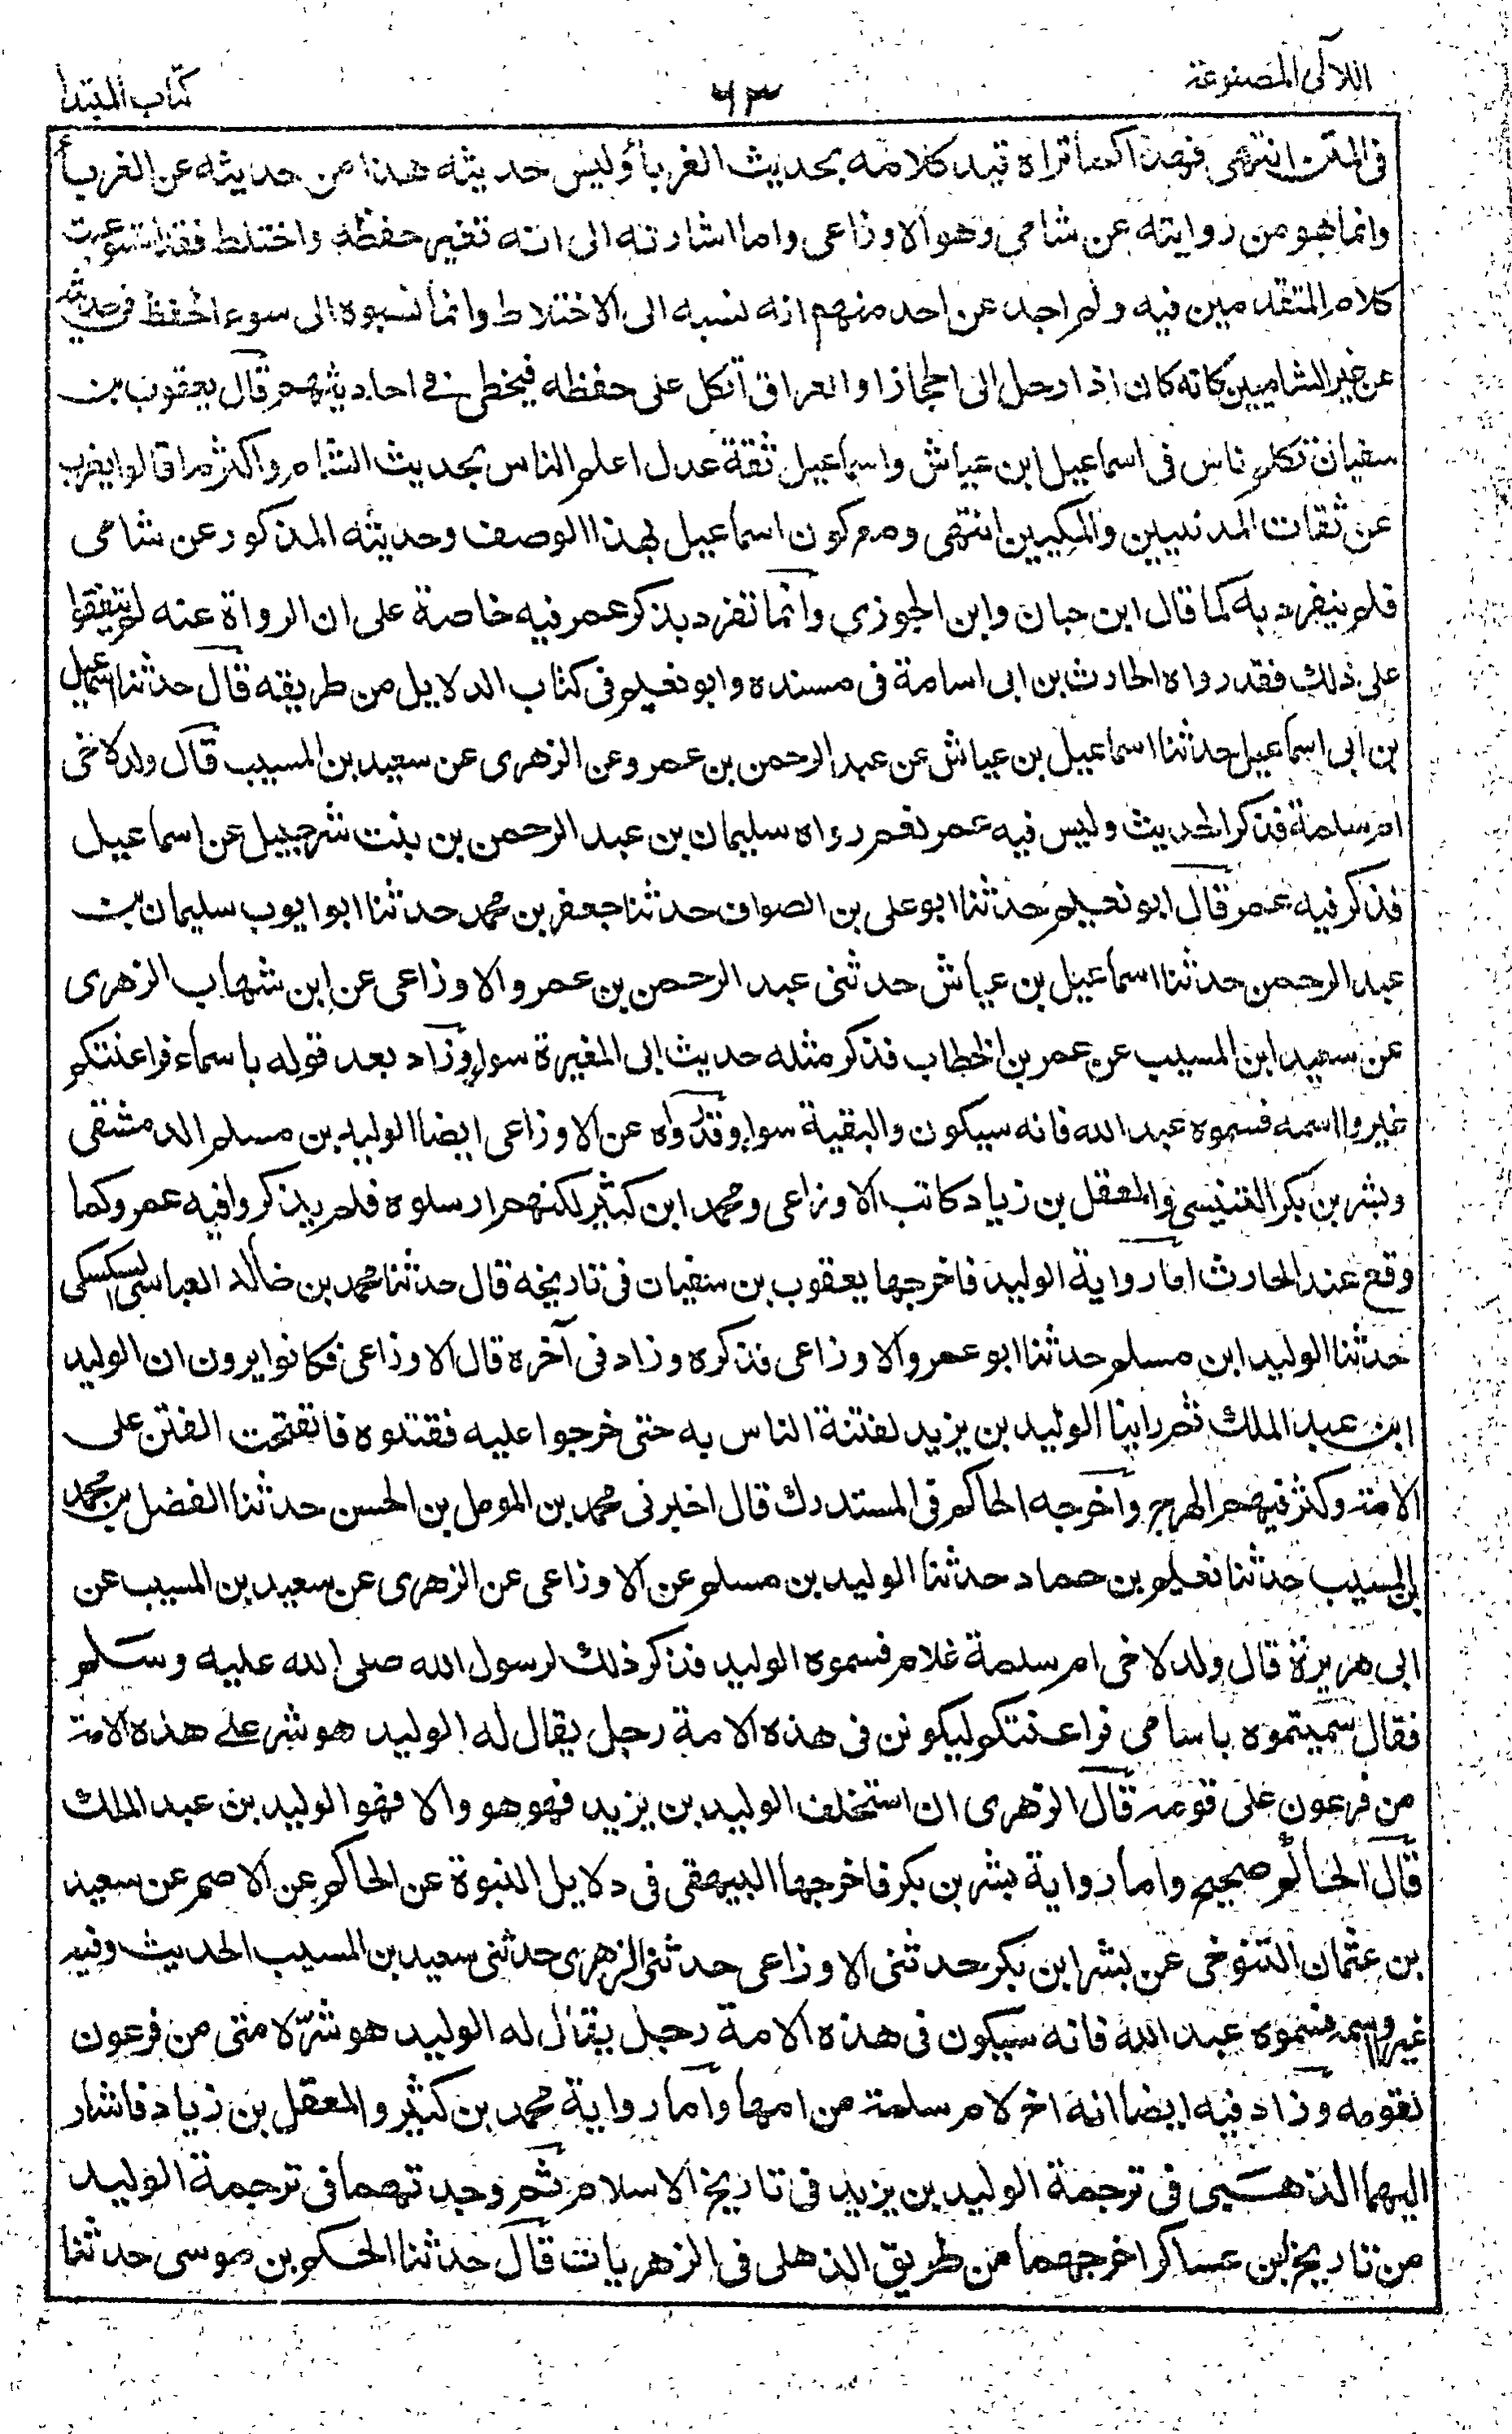 اللآلى المصنوعة
٦٣
كتاب المبتدا
فى المتن انتهى فهذا كما تراه قيد كلامه بحديث الغرباء وليس حديثه هذا من حديثه عن الغرباء
وانما هو من روايته عن شامى وهو الاوزاعى واما اشارته الى انه تغير حفظه واختلط فقد استوعبت
كلام المتقدمين فيه ولم اجد عن احد منهم انه نسبه الى الاختلاط وانما نسبوه الى سوء الحفظ فى حديثه
عن غير الشاميين كانه كان اذا رحل الى الحجاز او العراق اتكل على حفظه فيخطى فى احاديثهم قال يعقوب بن
سفيان تكلم ناس فى اسماعيل ابن عياش واسماعيل ثقة عدل اعلم الناس بحديث الشام واكثر ما قالوا يغرب
عن ثقات المدنيين والمكيين انتهى ومع كون اسماعيل بهذا الوصف وحديثه المذكور عن شامى
فلم ينفرد به كما قال ابن حبان وابن الجوزى وانما تفرد بذكر عمر فيه خاصة على ان الرواة عنه لم يتفقوا
على ذلك فقد رواه الحارث بن ابى اسامة فى مسنده وابو نعيم فى كتاب الدلايل من طريقه قال حدثنا اسماعيل
بن ابى اسماعيل حدثنا اسماعيل بن عياش عن عبد الرحمن بن عمرو عن الزهرى عن سعيد بن المسيب قال ولد لاخى
ام سلمة فذكر الحديث وليس فيه عمر نعم رواه سليمان بن عبد الرحمن بن بنت شرحبيل عن اسماعيل
فذكر فيه عمر قال ابو نعيم حدثنا ابو على بن الصواف حدثنا جعفر بن محمد حدثنا ابو ايوب سليمان بن
عبد الرحمن حدثنا اسماعيل بن عياش حدثنى عبد الرحمن بن عمرو الاوزاعى عن ابن شهاب الزهرى
عن سعيد ابن المسيب عن عمر بن الخطاب فذكر مثله حديث ابى المغيرة سواء وزاد بعد قوله باسماء فراعنتكم
غيروا اسمه فسموه عبد الله فانه سيكون والبقية سواء وقد رواه عن الاوزاعى ايضا الوليد بن مسلم الدمشقى
وبشر بن بكر التنيسى والمعقل بن زياد كاتب الاوزاعى ومحمد ابن كثير لكنهم ارسلوه فلم يذكروا فيه عمر وكما
وقع عند الحارث اما رواية الوليد فاخرجها يعقوب بن سفيان فى تاريخه قال حدثنا محمد بن خالد العباسى السكسكى
حدثنا الوليد ابن مسلم حدثنا ابو عمرو الاوزاعى فذكره وزاد فى آخره قال الاوزاعى فكانوا يرون ان الوليد
ابن عبد الملك ثم راينا الوليد بن يزيد لفتنة الناس به حتى خرجوا عليه فقتلوه فانفتحت الفتن على
الامة وكثر فيهم الهرج وآخرجه الحاكم فى المستدرك قال اخبرنى محمد بن المومل بن الحسن حدثنا الفضل بن محمد
بن المسيب حدثنا نعيم بن حماد حدثنا الوليد بن مسلم عن الاوزاعى عن الزهرى عن سعيد بن المسيب عن
ابى هريرة قال ولد لاخى ام سلمة غلام فسموه الوليد فذكر ذلك لرسول الله صلى الله عليه وسلم
فقال سميتموه باسامى فراعنتكم ليكونن فى هذه الامة رجل يقال له الوليد هو شر على هذه الامة
من فرعون على قومه قال الزهرى ان استخلف الوليد بن يزيد فهو هو والا فهو الوليد بن عبد الملك
قال الحاكم صحيح واما رواية بشر بن بكر فاخرجها البيهقى فى دلايل النبوة عن الحاكم عن الاصم عن سعيد
بن عثمان التنوخى عن بشر ابن بكر حدثنى الاوزاعى حدثنى الزهرى حدثنى سعيد بن المسيب الحديث وفيه
غيروا اسمه فسموه عبد الله فانه سيكون فى هذه الامة رجل يقال له الوليد هو شر لامتى من فرعون
لقومه وزاد فيه ايضا انه اخ لام سلمة من امها وآما رواية محمد بن كثير والمعقل بن زياد فاشار
اليهما الذهبى فى ترجمة الوليد بن يزيد فى تاريخ الاسلام ثم وجدتهما فى ترجمة الوليد
من تاريخ ابن عساكر اخرجهما من طريق الذهلى فى الزهريات قال حدثنا الحكم بن موسى حدثنا